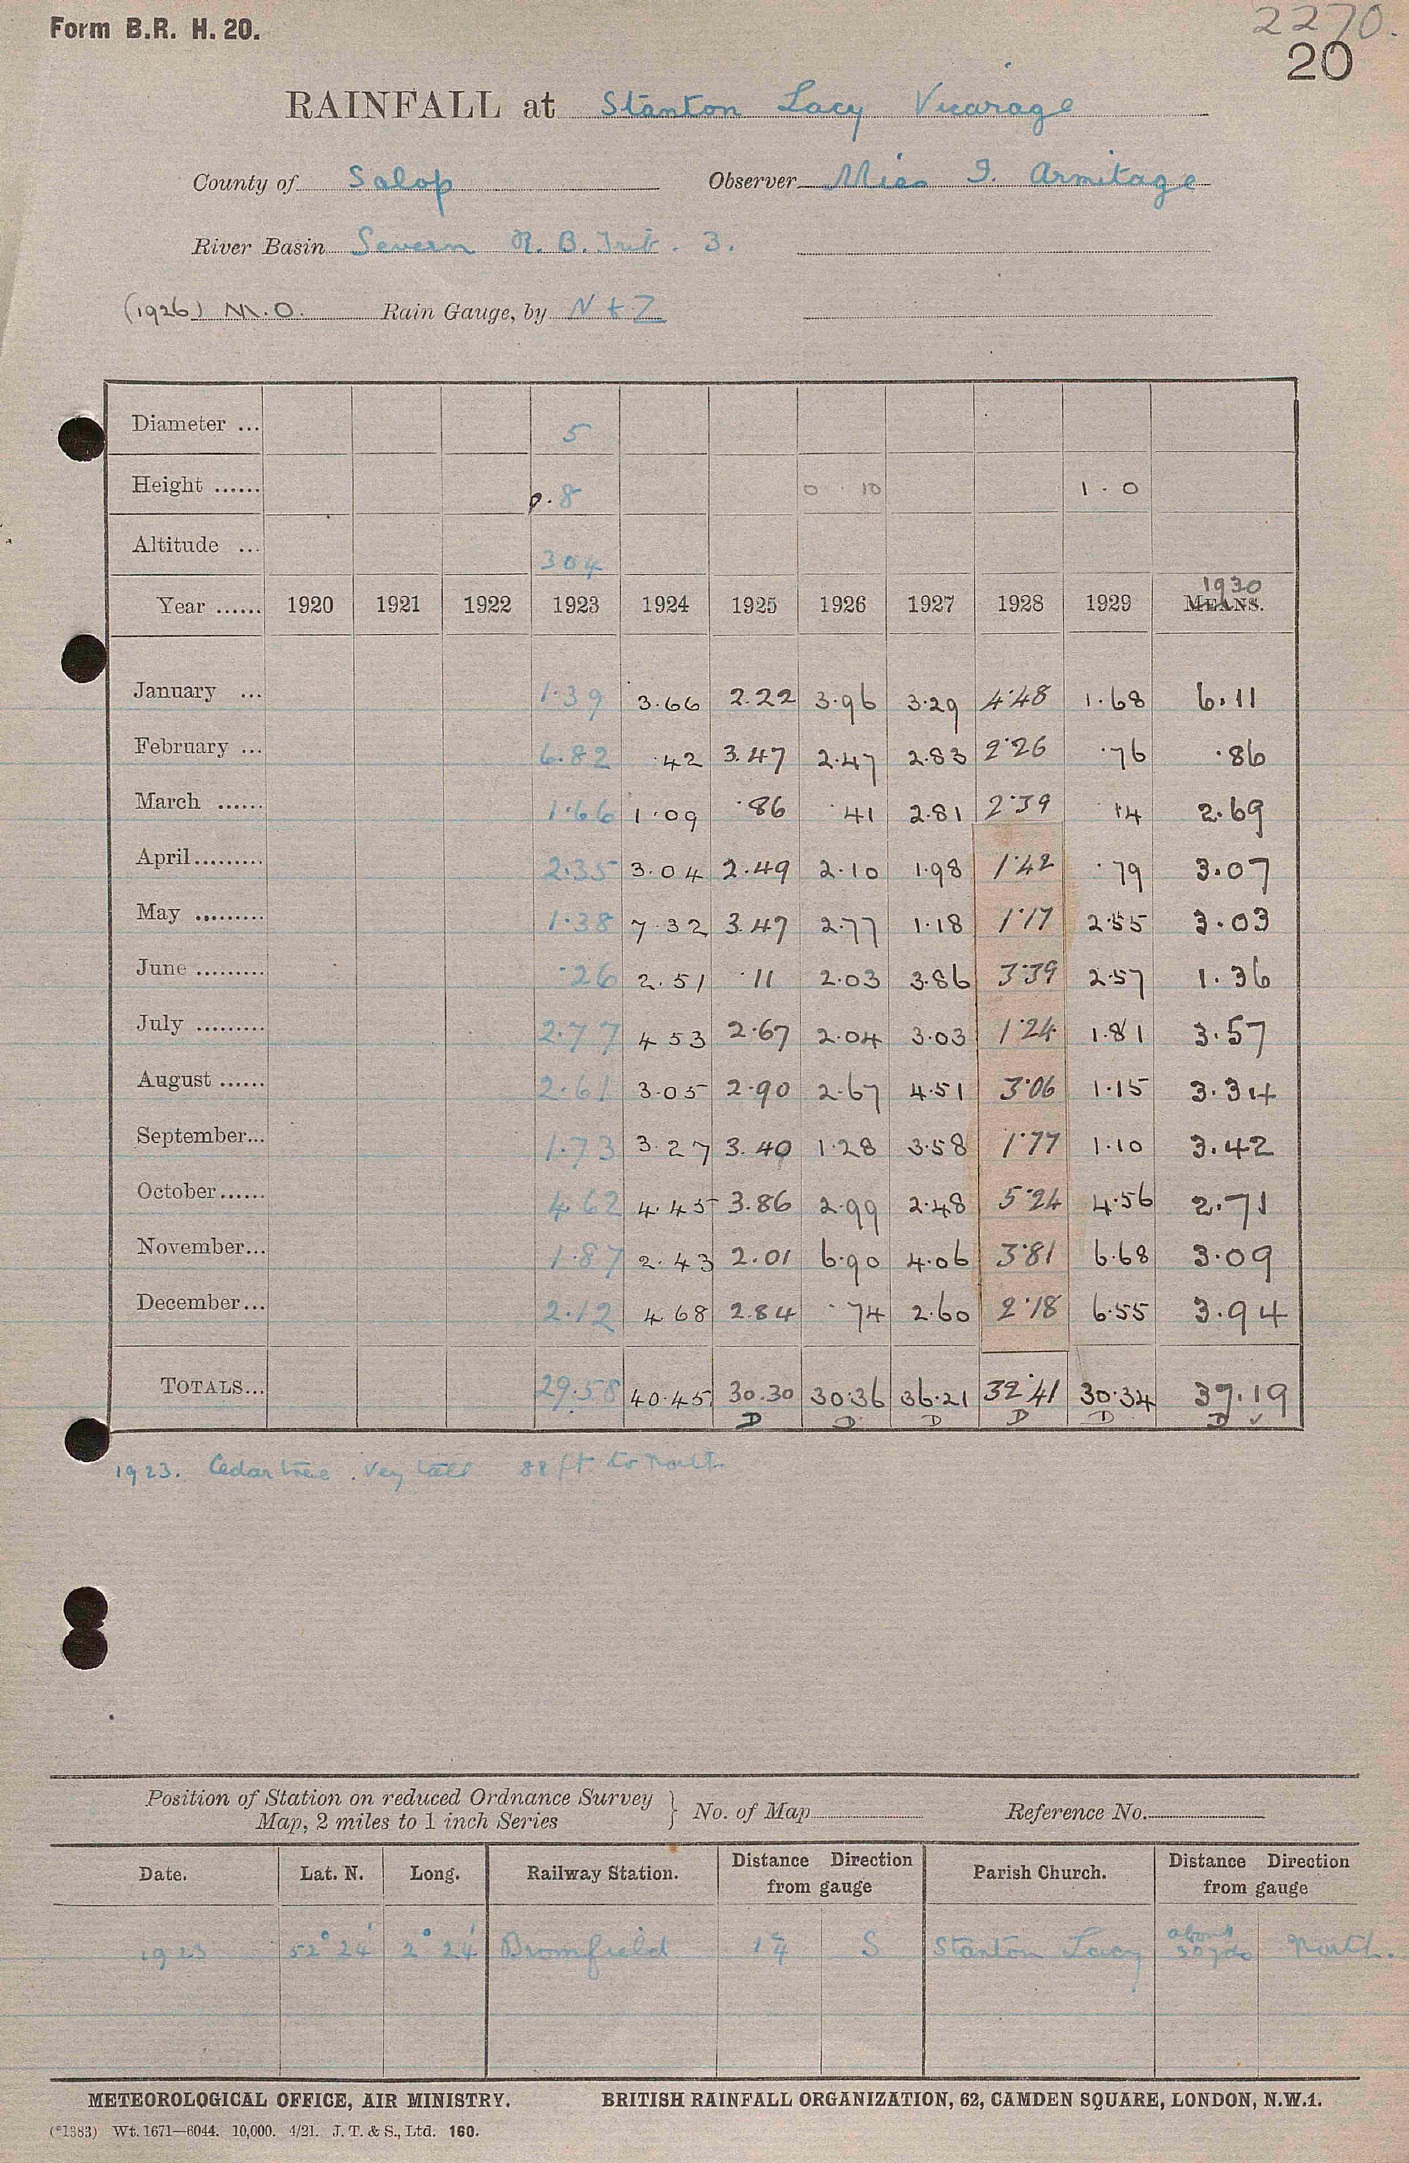 Form B.R. H. 20.
2270.
20
RAINFALL at Stanton Lacy Vicarage
County of Salop Observer Miss I. Armitage
River Basin Severn R. B. Trib. 3.
(1926) M.O. Rain Gauge, by N & Z
Diameter ... 5
Height ...... 0.8 0 10 1.0
Altitude ... 304
1930
Year ...... 1920 1921 1922 1923 1924 1925 1926 1927 1928 1929 MEANS.
January ... 1.39 3.66 2.22 3.96 3.29 4.48 1.68 6.11
February ... 6.82 .42 3.47 2.47 2.83 2.26 .76 .86
March ...... 1.66 1.09 .86 .41 2.81 2.39 .14 2.69
April......... 2.35 3.04 2.49 2.10 1.98 1.42 .79 3.07
May ......... 1.38 7.32 3.47 2.77 1.18 1.17 2.55 3.03
June ......... .26 2.51 .11 2.03 3.86 3.39 2.57 1.36
July ......... 2.77 4 53 2.67 2.04 3.03 1.24 1.81 3.57
August ...... 2.61 3.05 2.90 2.67 4.51 3.06 1.15 3.34
September... 1.73 3.27 3.40 1.28 3.58 1.77 1.10 3.42
October...... 4.62 4.45 3.86 2.99 2.48 5.24 4.56 2.71
November... 1.87 2.43 2.01 6.90 4.06 3.81 6.68 3.09
December... 2.12 4 68 2.84 .74 2.60 2.18 6.55 3.94
TOTALS... 29.58 40.45 30.30 30.36 36.21 32.41 30.34 37.19
D D D D D D ✓
1923. Cedar tree . Very tall 88 ft. to North.
Position of Station on reduced Ordnance Survey
Map, 2 miles to 1 inch Series } No. of Map Reference No.
Date. Lat. N. Long. Railway Station. Distance Direction from gauge Parish Church. Distance Direction from gauge
1923 52° 24' 2° 24' Bromfield 1¼ S Stanton Lacy about 30 yds North.
METEOROLOGICAL OFFICE, AIR MINISTRY. BRITISH RAINFALL ORGANIZATION, 62, CAMDEN SQUARE, LONDON, N.W.1.
(*1383) Wt. 1671—6044. 10,000. 4/21. J. T. & S., Ltd. 160.